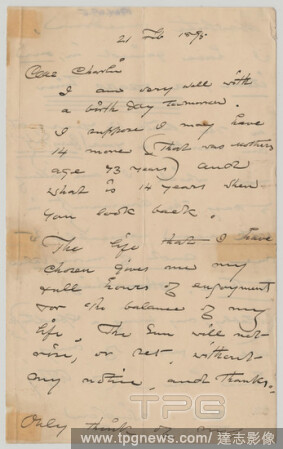 21 Feb 1895
Dear Charlie
I am very well with
a birth day tomorrow.
I suppose I may have
14 more (That was mothers
age 73 years) and
what is 14 years when
you look back.
The life that I have
chosen gives me my
full hours of enjoyment
for the balance of my
life. The Sun will not
rise, or set, without
my notice, and thanks.
Only think of
TPG
www.tpgnews.com/達志影像